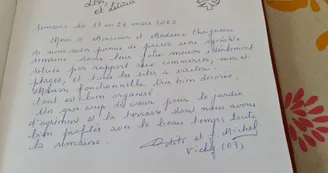 et Letizia
Semaine du 19 au 26 mars 2022
Merci à Monsieur et Madame Chaigneau
de nous avoir permis de passer une agréable
semaine dans leur jolie maison idéalement
située par rapport aux commerces, mer et
plages, et tous les sites à visiter.
Maison fonctionnelle très bien décorée,
tout est bien organisé
Un gros coup de cœur pour le jardin
d'agrément et la terrasse dont nous avons
bien profités avec le beau temps toute
la semaine.
Michel
Vichy (03)